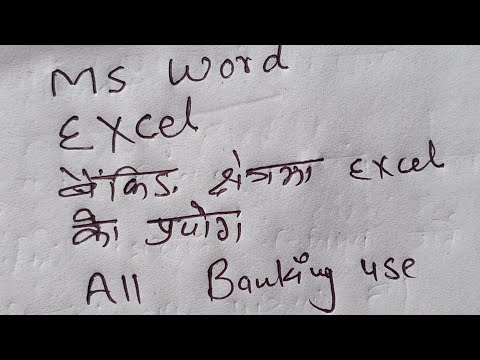 MS Word
Excel
बैंकिङ क्षेत्रमा Excel
को प्रयोग
All Banking use